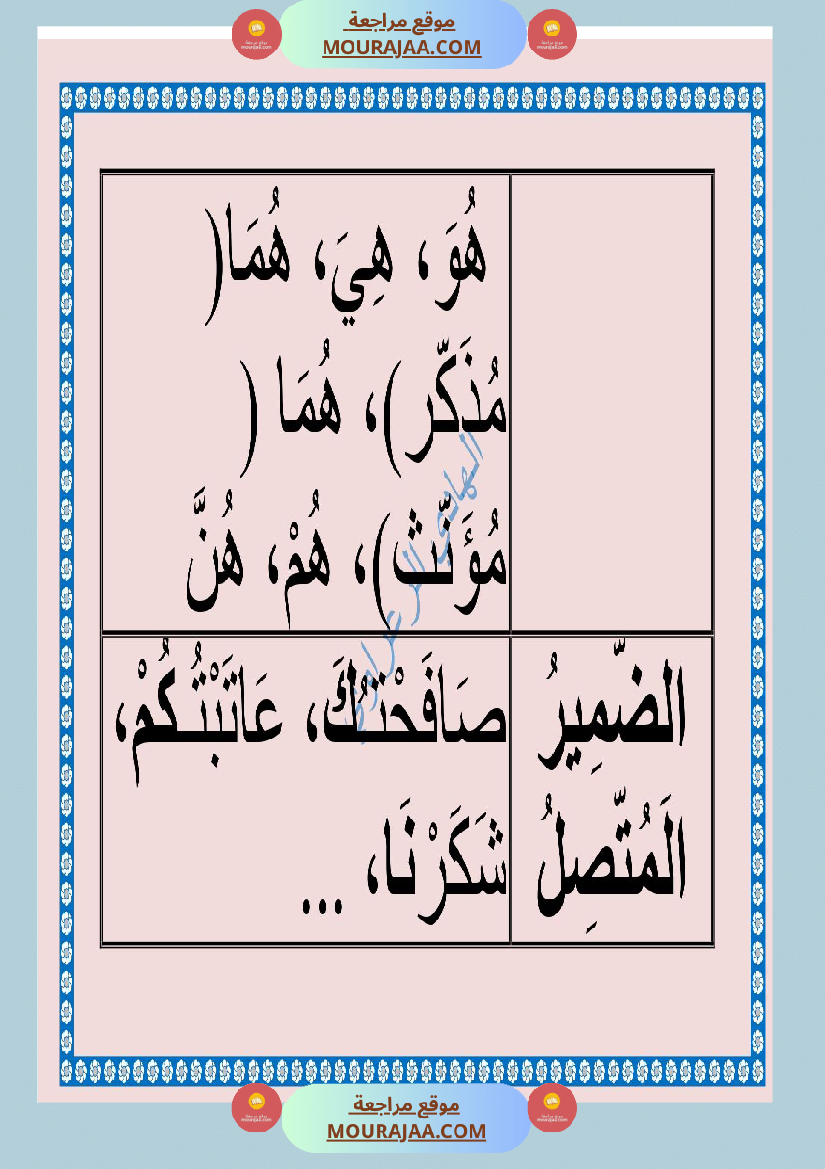 موقع مراجعة
MOURAJAA.COM
هُوَ، هِيَ، هُمَا(
مُذَكّر)، هُمَا (
مُؤَنّث)، هُمْ، هُنَّ
الضّمِيرُ
المُتّصِلُ
صَافَحْتُكَ، عَاتَبْتُكُمْ،
شَكَرْنَا، ...
موقع مراجعة
MOURAJAA.COM